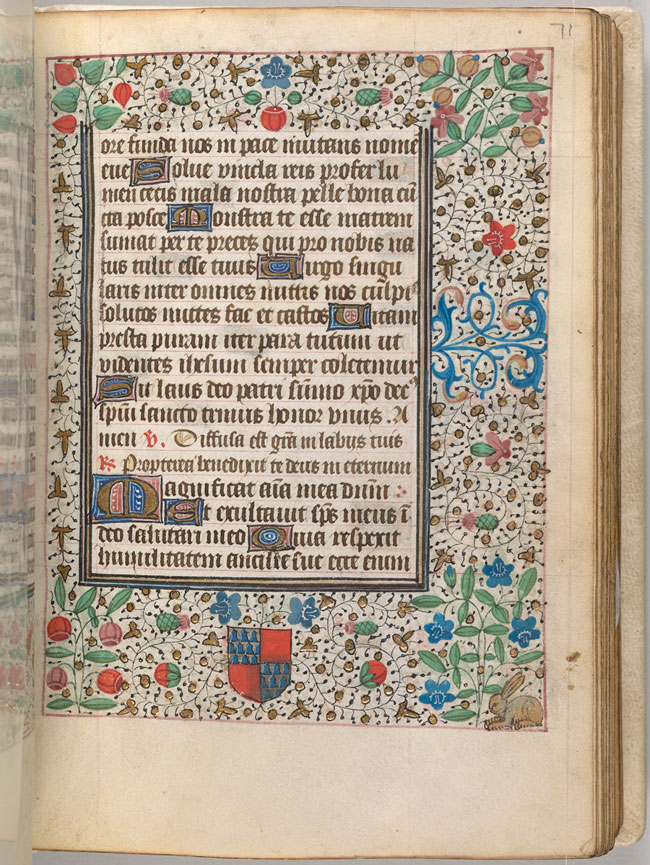 71
ore funda nos in pace mutans nome
eue Solue vincla reis profer lu
men cecis mala nostra pelle bona cũ
cta posce Monstra te esse matrem
sumat per te preces qui pro nobis na
tus tulit esse tuus Uirgo singu
laris inter omnes mittis nos culpi
solutos mittes fac et castos Uitam
presta puram iter para tutum ut
videntes ihesum semper coletemur
Sit laus deo patri sũmo xpo dec
spũi sancto trinus honor vnus . A
men V. Diffusa est grã in labijs tuis
R Propterea benedixit te deus in eternum
Magnificat aĩa mea dñm
Et exultauit sp̃s meus ĩ
deo salutari meo Quia respexit
humilitatem ancille sue ecce enim